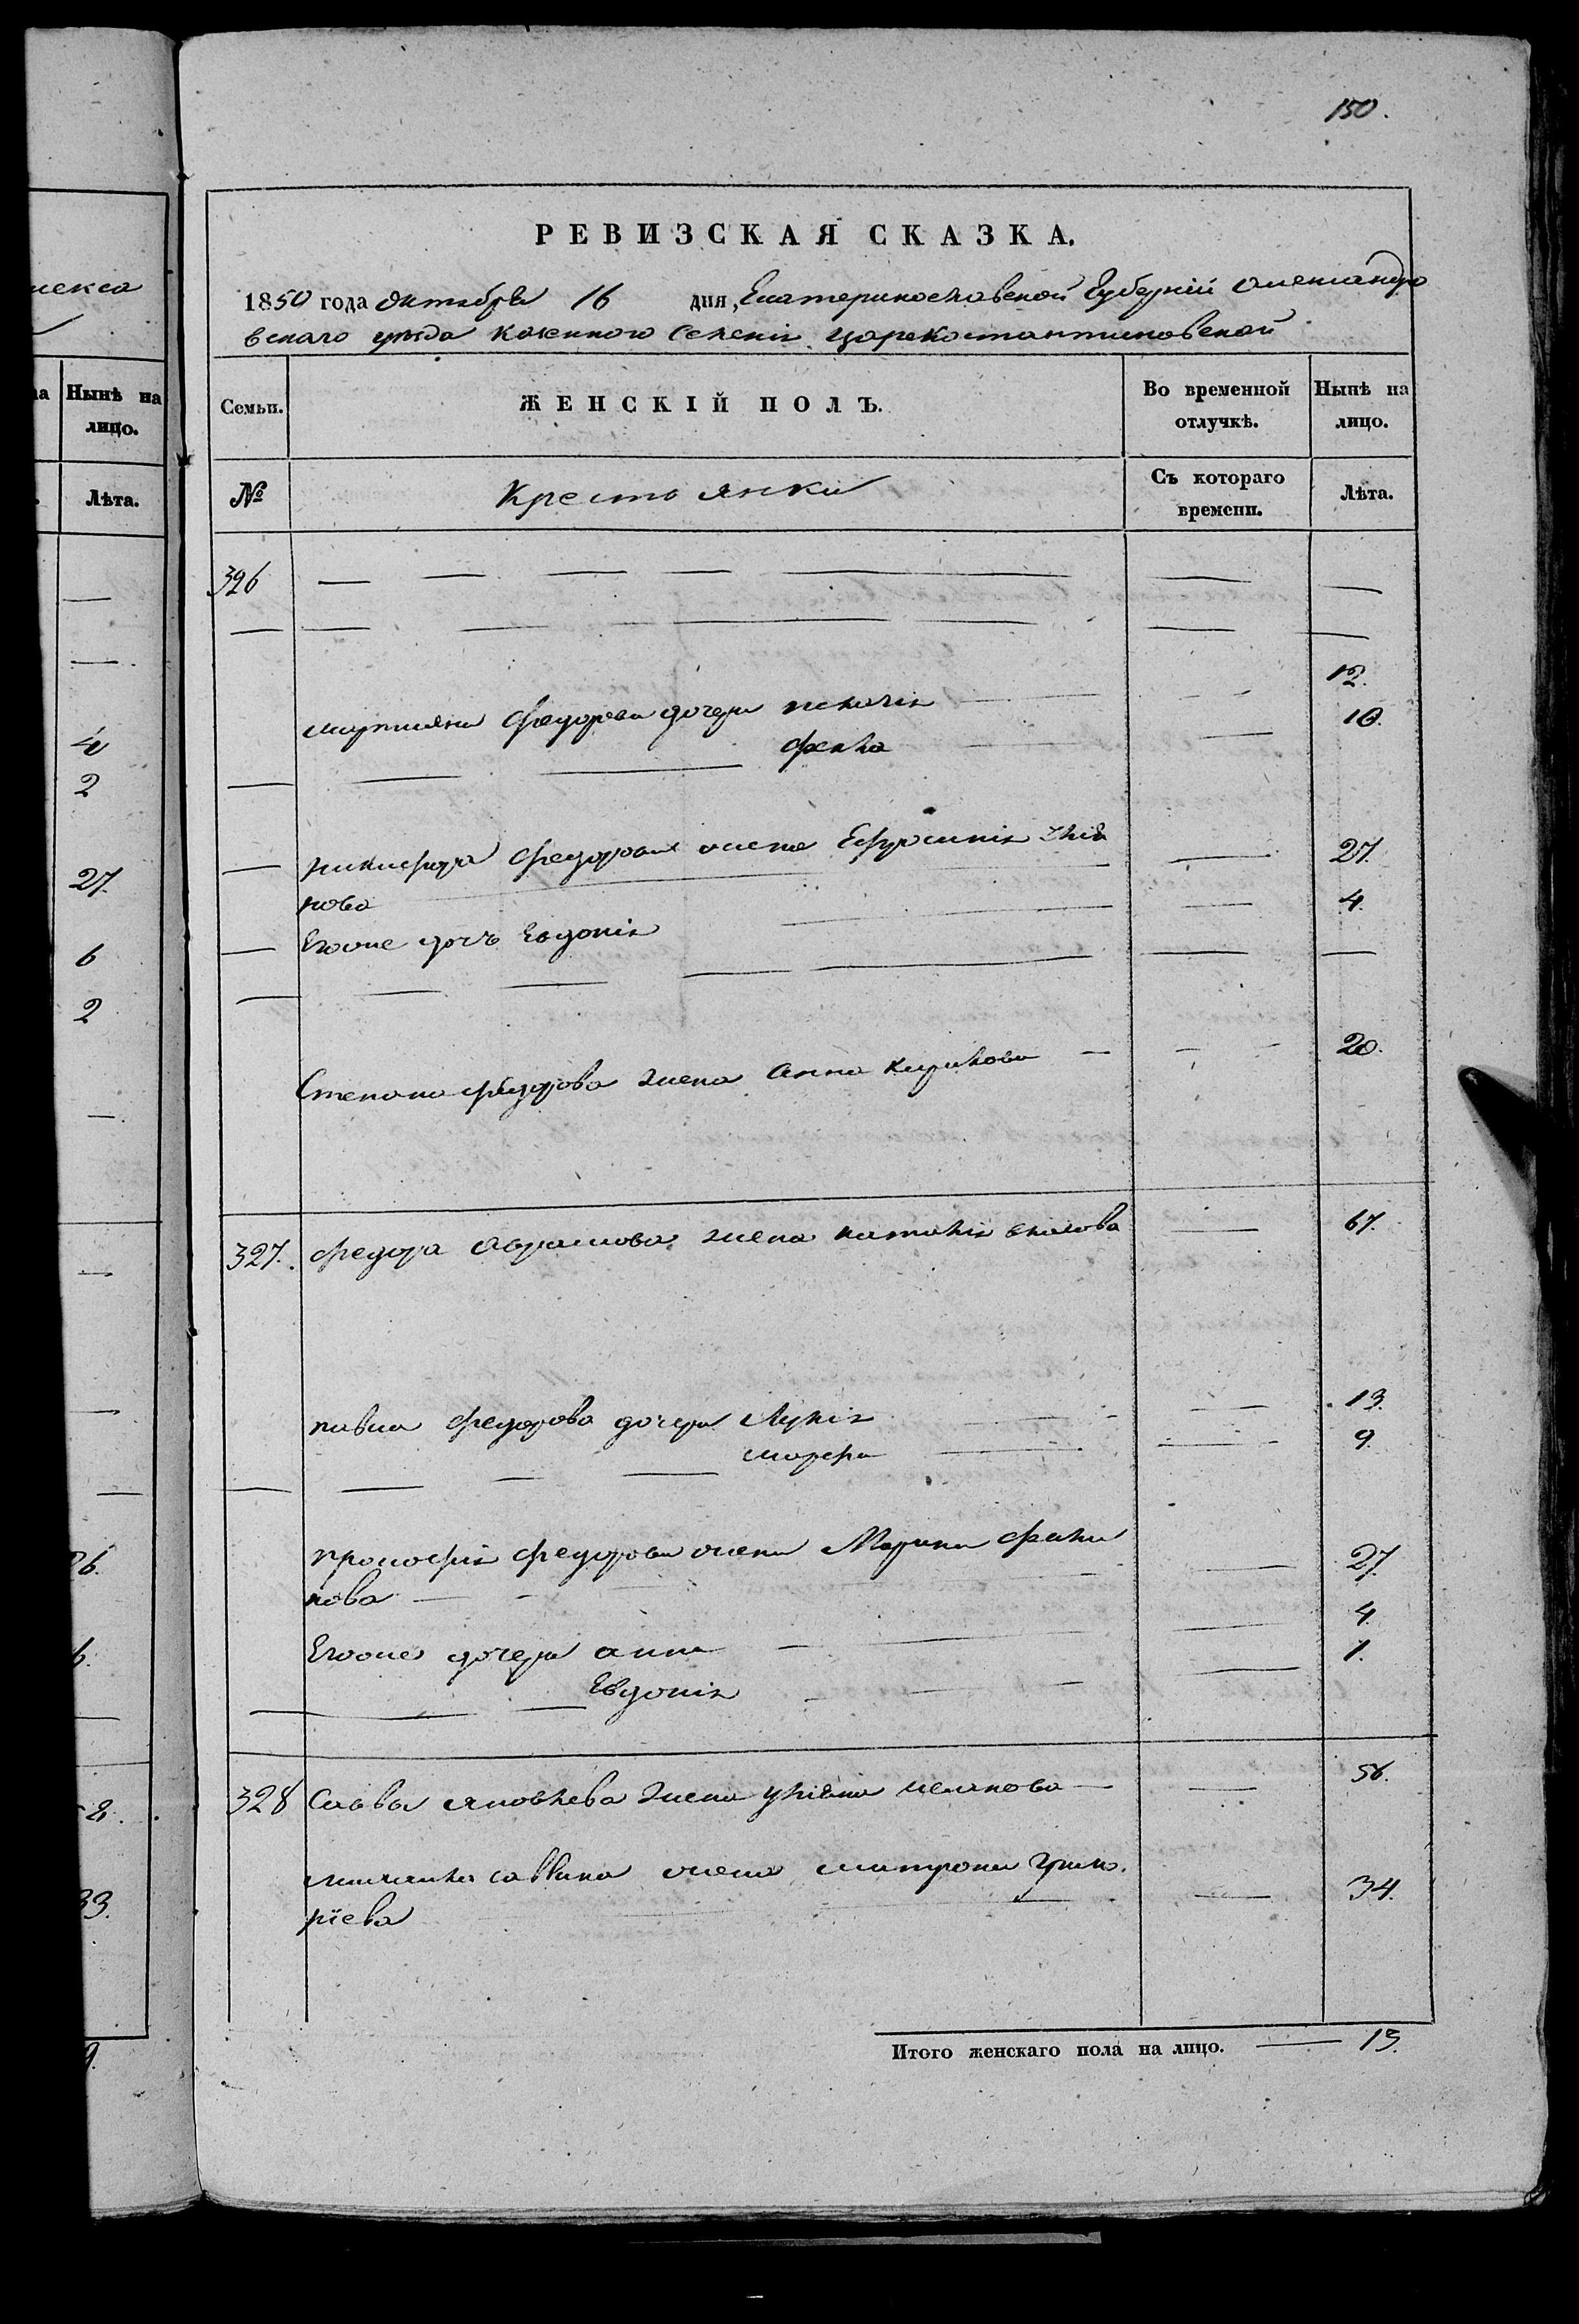 150.
РЕВИЗСКАЯ СКАЗКА.
1850 года октября 16 дня, Екатеринославской Губернiи Александро
вскаго уѣзда казенного Селенiя Царекостантиновской
Семьи.
ЖЕНСКІЙ ПОЛЪ.
Во временной отлучкѣ.
Нынѣ на лицо.
№
Крестьянки
Съ котораго времени.
Лѣта.
326
12.
Мартина федорова дочери
10.
фекла
Никифора федорова жена Ефросинiя
27.
нова
Егоже дочь Евдокiя 4.
Степана федорова жена Анна Кирилова 20.
327. федора Аврамова жена Наталiя 67.
павла федорова дочери Лукiя 13.
марфа 9.
федорова жена Марина
нова 27.
Егоже дочери анна 4.
Евдокiя 1.
328 Саввы яковлева жена улiяна 56.
саввина жена матрона Григо.
рїева 34.
Итого женскаго пола на лицо. 13.
Нынѣ на
лицо.
Лѣта.
4
2
27.
6
2